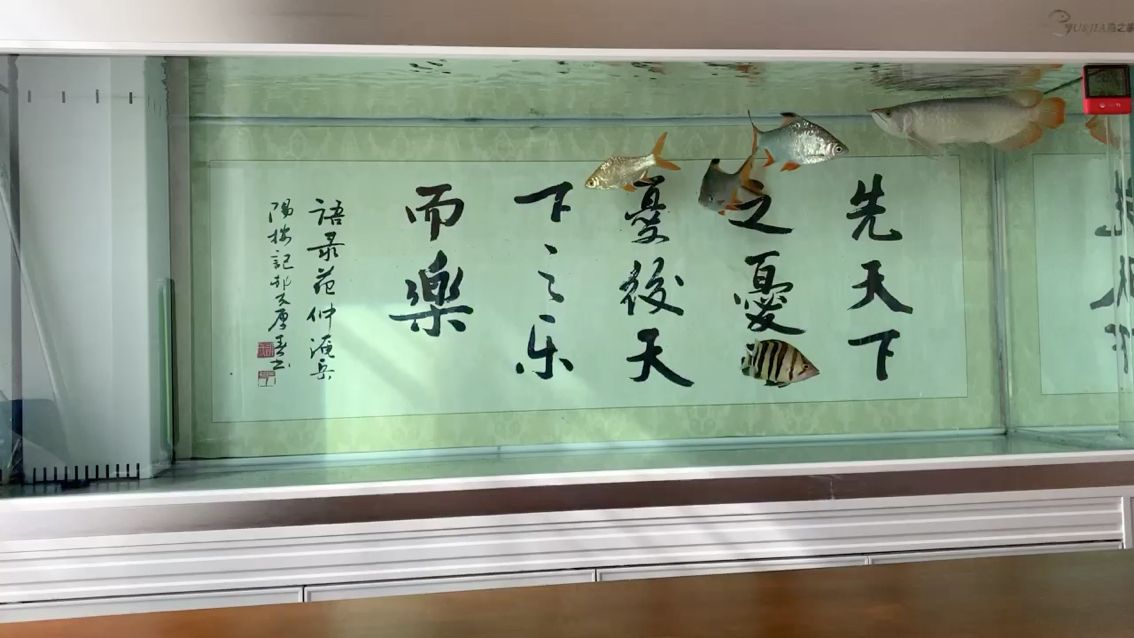 先天下
之憂
憂後天
下之乐
而樂
語录范仲淹岳
陽楼記